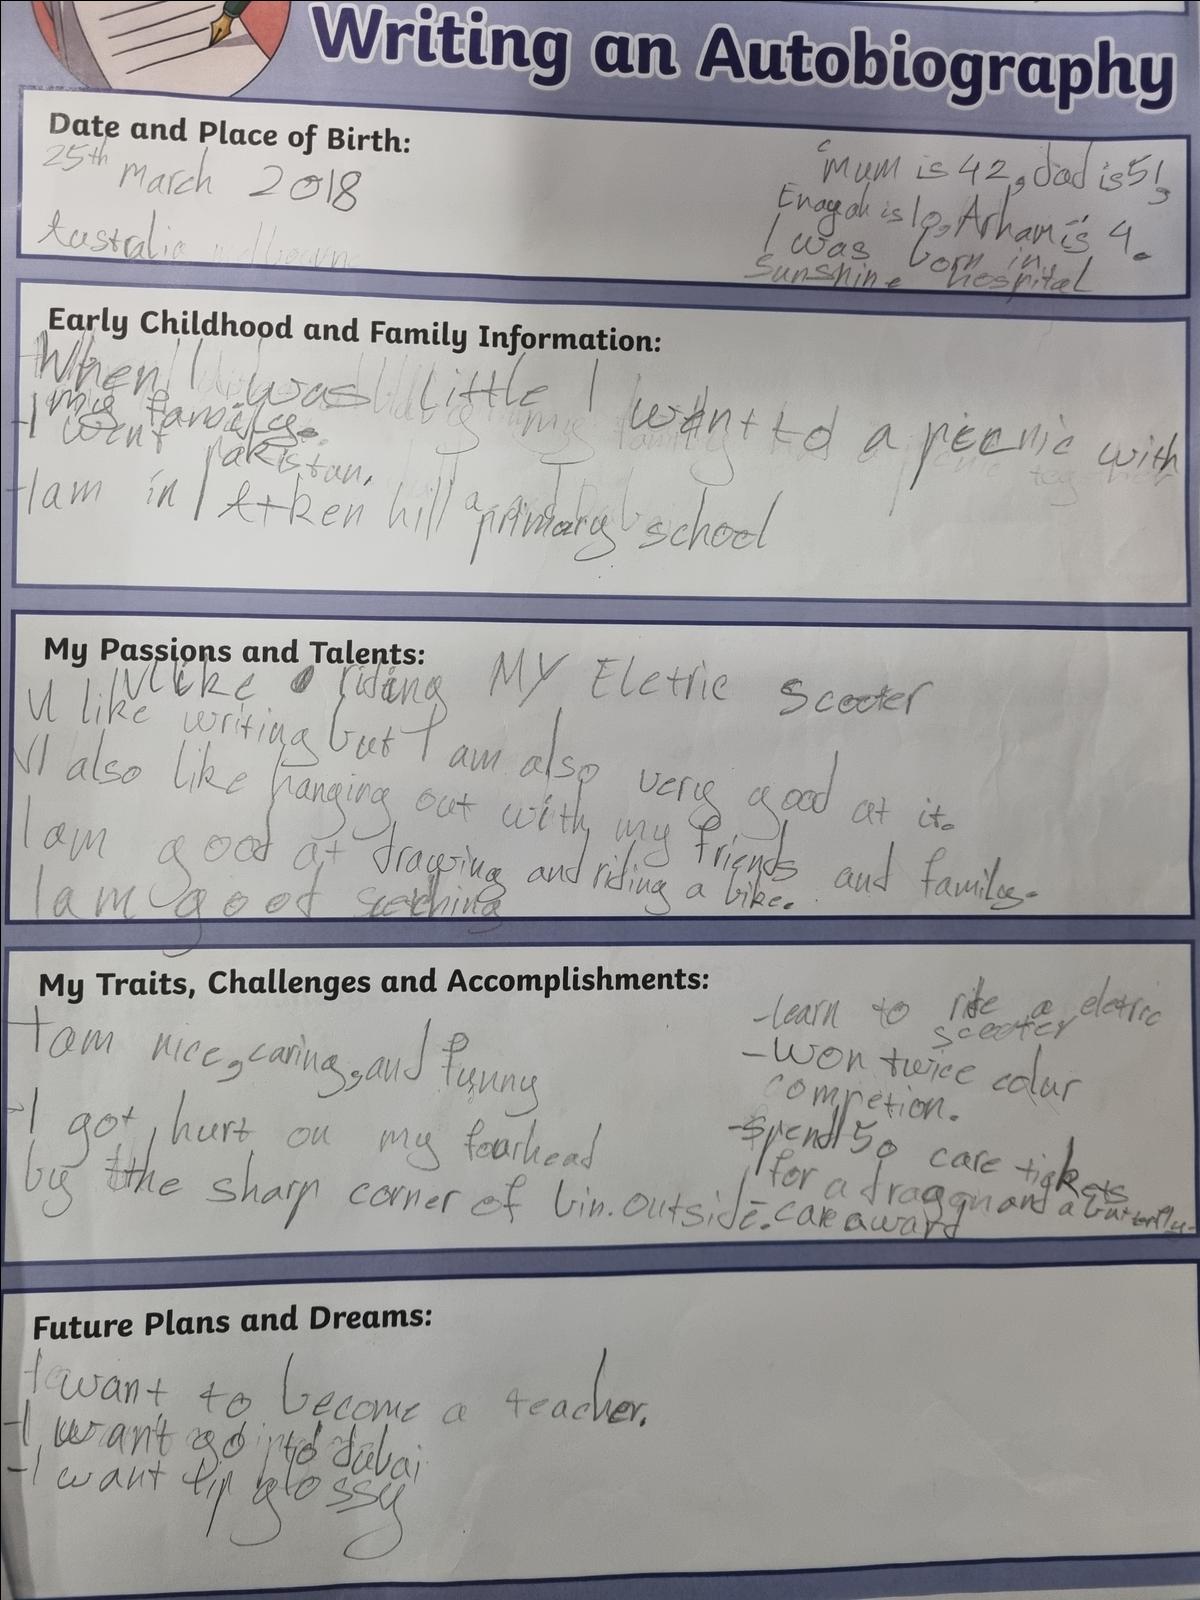 Writing an Autobiography
Date and Place of Birth:
25th March 2018
Australia melbourne
Mum is 42, dad is 51,
Enayah is 10, Arham is 4.
I was born in
Sunshine hospital
Early Childhood and Family Information:
When I was little I want to a picnic with
my family.
-I went pakistan.
-I am in Atken hill primary school
My Passions and Talents:
I like riding MY Eletric Scooter
I like writing but I am also very good at it.
I also like hanging out with my friends and family.
I am good at drawing and riding a bike.
I am good
My Traits, Challenges and Accomplishments:
I am nice, caring, and funny
-I got hurt on my fourhead
by the sharp corner of bin. outside.
-learn to ride a eletric
scooter
-Won twice colur
competion.
-Spend 50 care tickets
for a dragon and a butterfly.
-care award
Future Plans and Dreams:
I want to become a teacher.
-I want go to dubai
-I want lip glossy